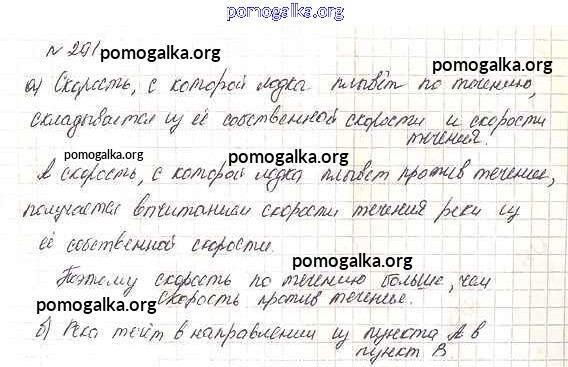 pomogalka.org
№ 291 pomogalka.org
pomogalka.org
а) Скорость, с которой лодка плывёт по течению,
складывается из её собственной скорости и скорости
течения.
pomogalka.org pomogalka.org
А скорость, с которой лодка плывет против течение,
получается вычитанием скорости течения реки из
её собственной скорости.
pomogalka.org
Поэтому скорость по течению больше, чем
скорость против течение.
pomogalka.org pomogalka.org
б) Река течёт в направлении из пункта А в
пункт В